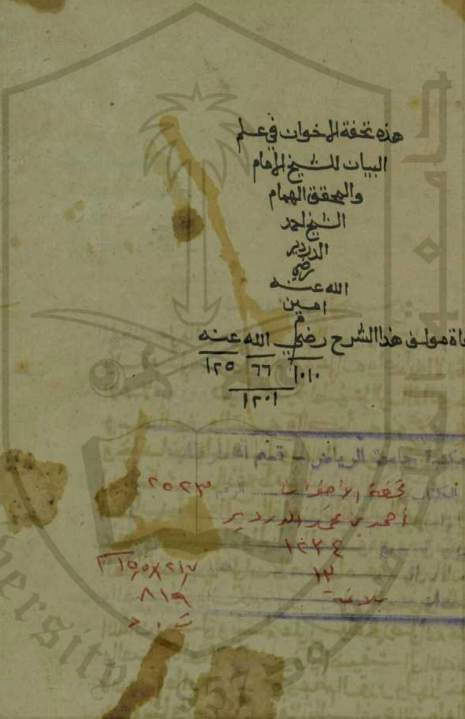 هذه تحفة الاخوان في علم
البيان للشيخ الامام
والمحقق الهمام
الشيخ احمد
الدردير
رضي
الله عنه
امين
م
مولف هذا الشرح رضي الله عنه
١٠١٠ ٦٦ ١٢٥
١٢٠١
جامعة الرياض - قسم
الكتاب تحفة الأخوان الرقم ٢٥٢٣
أحمد بن محمد الدردير
١٢٣٤
١٣
بلاغة
٨١٩
ersity 1957